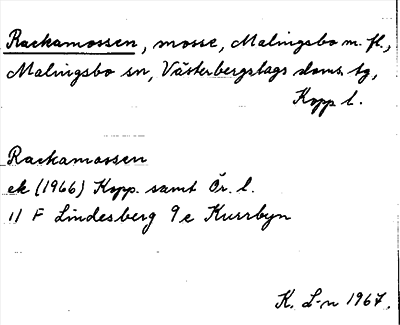 Rackamossen, mosse, Malingsbo m. fl.,
Malingsbo sn, Västerbergslags doms. tg,
Kopp l.
Rackamossen
ek (1966) Kopp. samt Ör. l.
11 F Lindesberg 9e Kursbyn
K. L-n 1967.